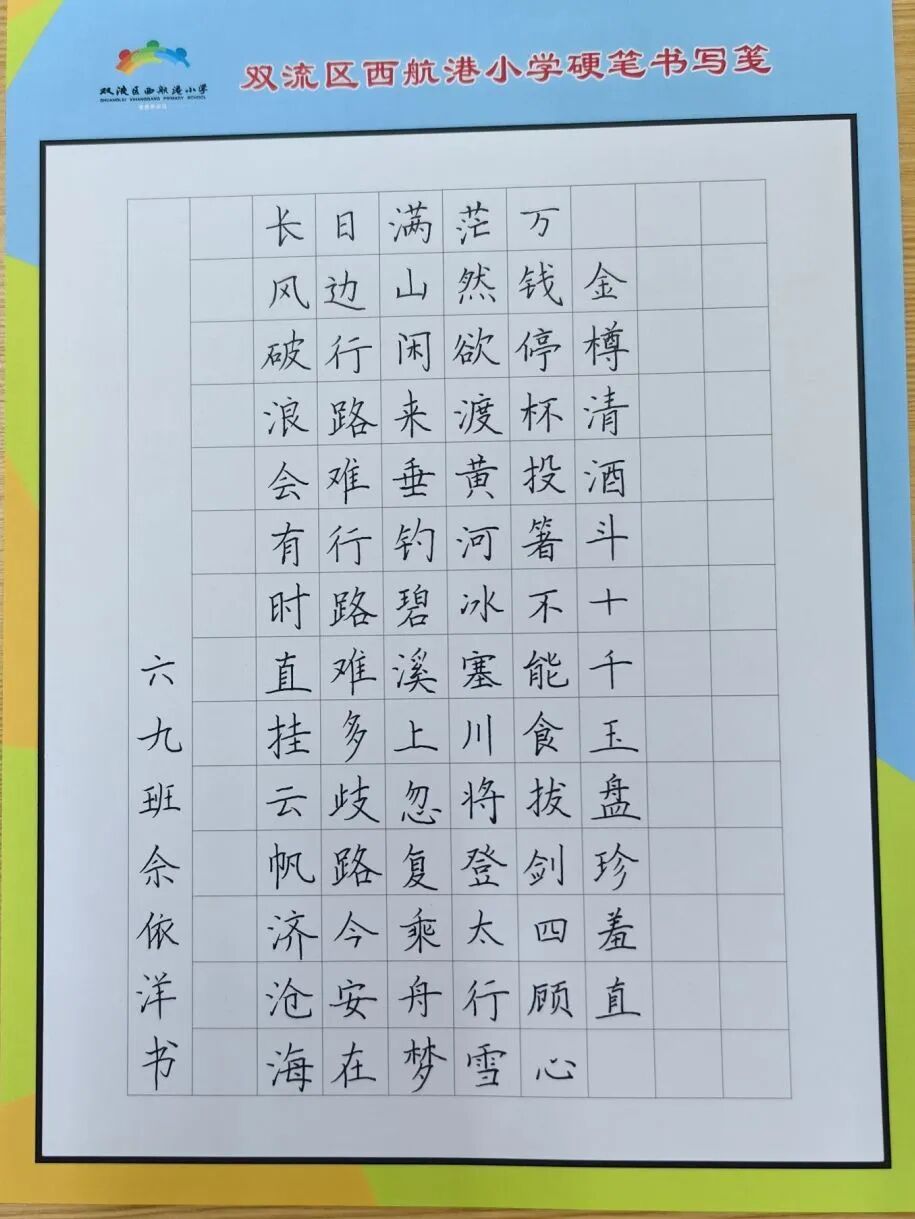 双流区西航港小学
SHUANGLIU XIHANGGANG PRIMARY SCHOOL
双流区西航港小学硬笔书写笺
金樽清酒斗十千玉盘珍羞直
万钱停杯投箸不能食拔剑四顾心
茫然欲渡黄河冰塞川将登太行雪
满山闲来垂钓碧溪上忽复乘舟梦
日边行路难行路难多歧路今安在
长风破浪会有时直挂云帆济沧海
六九班佘依洋书